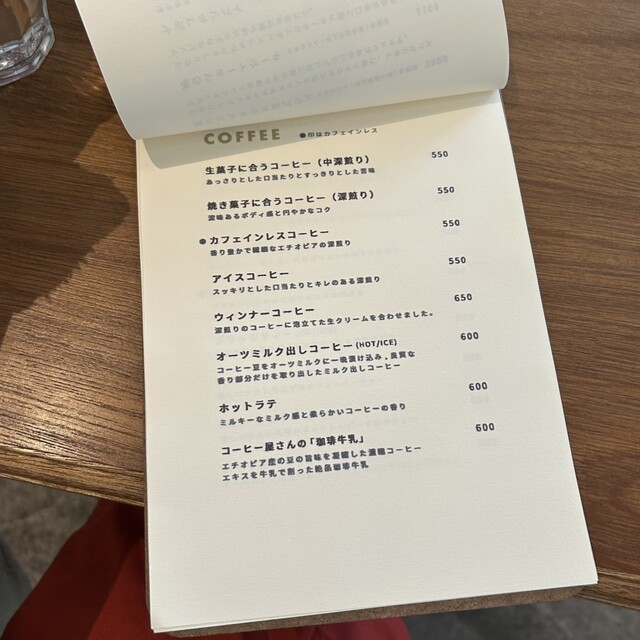 COFFEE ●印はカフェインレス
生菓子に合うコーヒー（中深煎り） 550
あっさりとした口当たりとすっきりとした苦味
焼き菓子に合うコーヒー（深煎り） 550
深味あるボディ感と円やかなコク
●カフェインレスコーヒー 550
香り豊かで繊細なエチオピアの深煎り
アイスコーヒー 550
スッキリとした口当たりとキレのある深煎り
ウィンナーコーヒー 650
深煎りのコーヒーに泡立てた生クリームを合わせました。
オーツミルク出しコーヒー(HOT/ICE) 600
コーヒー豆をオーツミルクに一晩漬け込み，良質な
香り部分だけを取り出したミルク出しコーヒー
ホットラテ 600
ミルキーなミルク感と柔らかいコーヒーの香り
コーヒー屋さんの「珈琲牛乳」 600
エチオピア産の豆の旨味を凝縮した濃縮コーヒー
エキスを牛乳で割った絶品珈琲牛乳